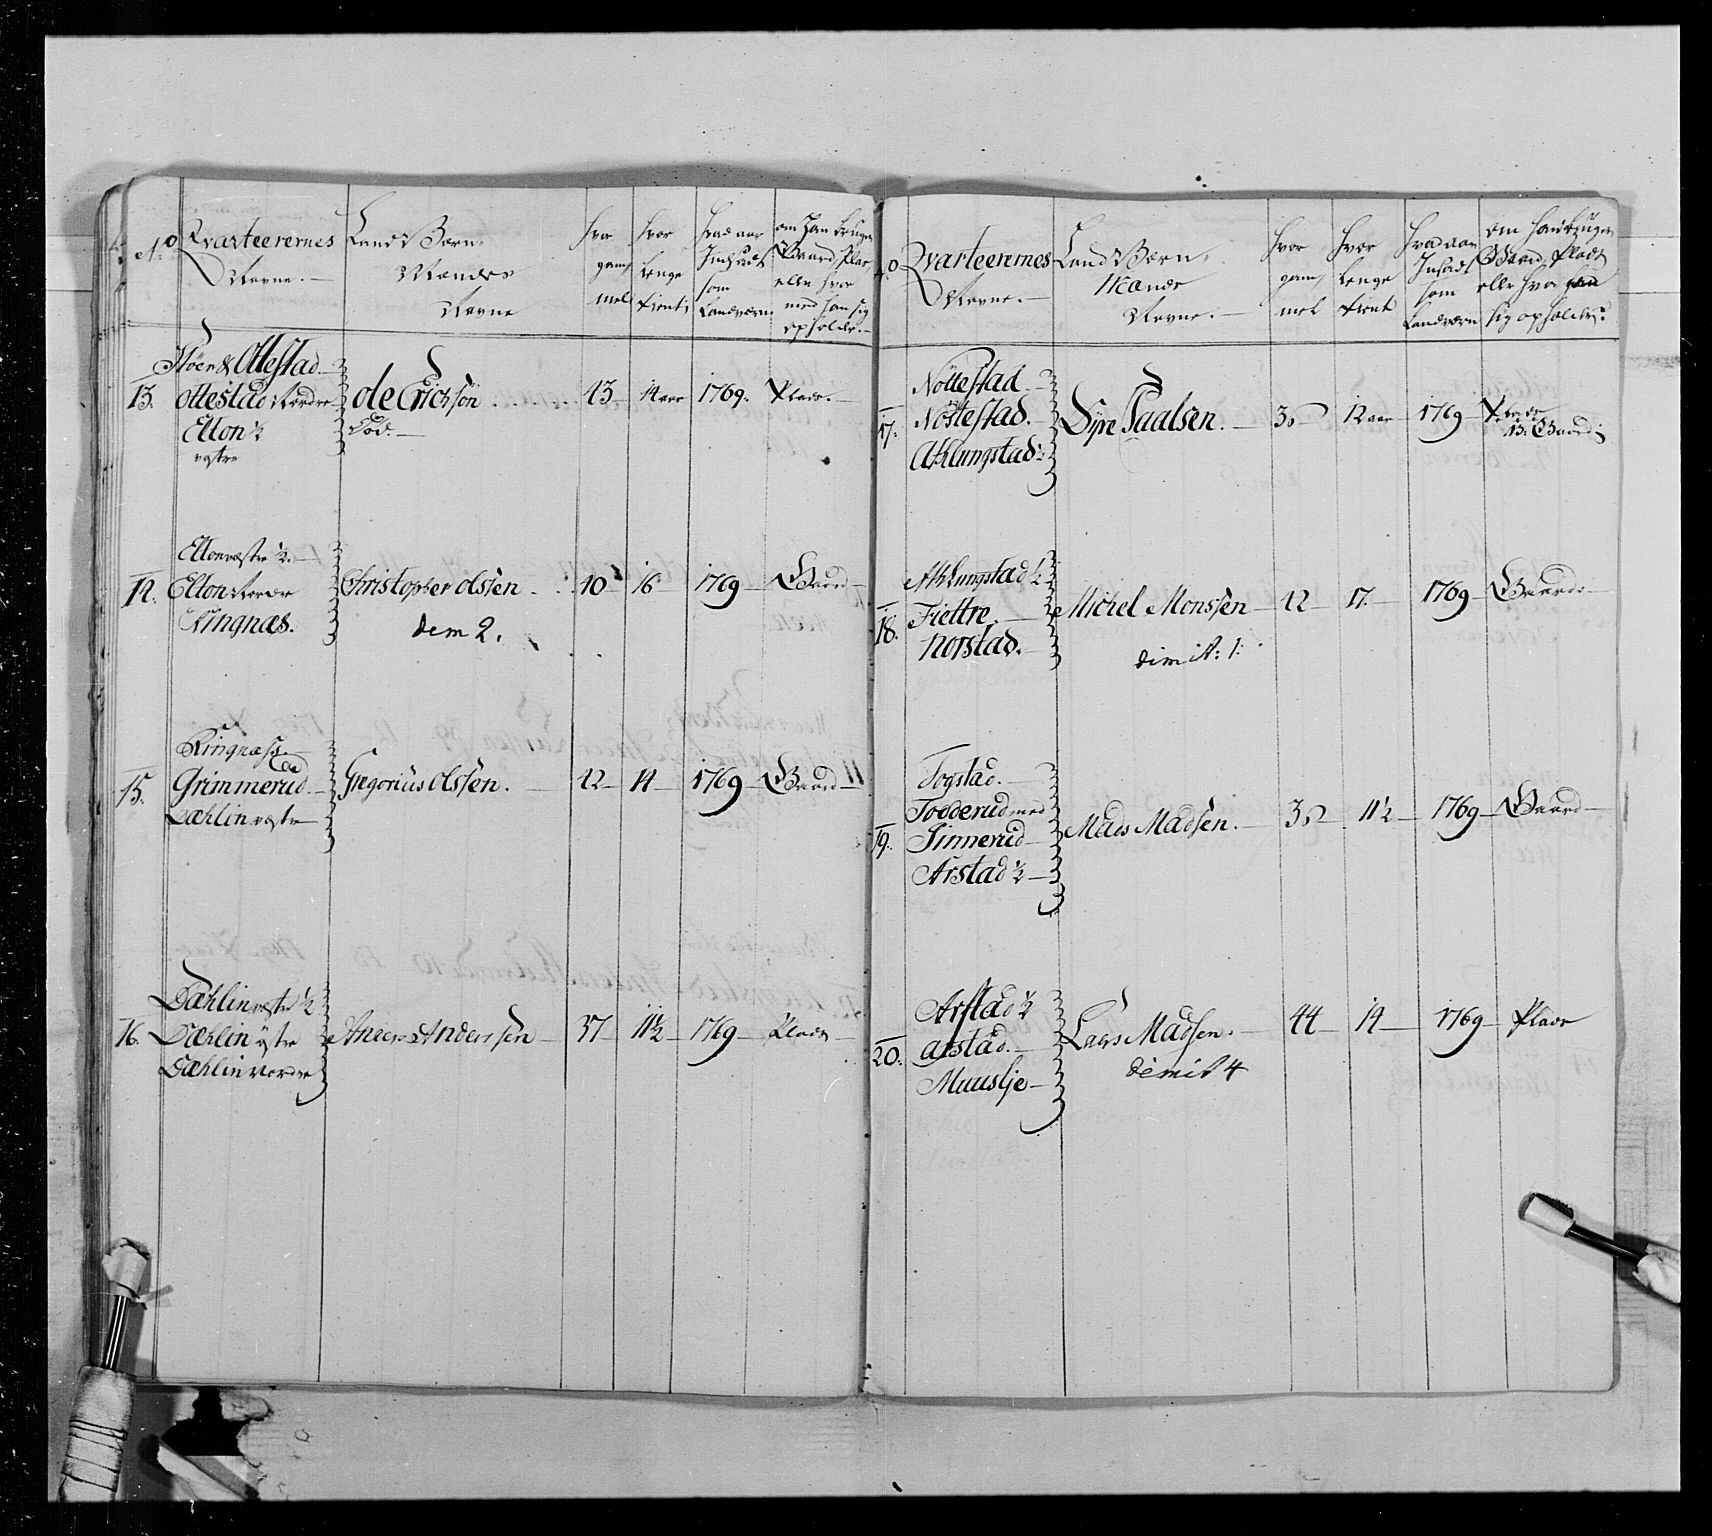 No Qvarteerernes Navne.
Land Værn Mænds Navne
hvor gammel
hvor lenge tient
hvad aar Indsadt som Landværn
om han bruger Gaard, Plas eller hvor med han sig opholder.
Ottestad
13. Ottestad Nordre
Elton ½
vestre
Ole Erichsön
Död.
43
14 aar
1769.
Plads.
Elton vestre ½.
14. Elton Nordre
Ringnæs.
Christopher Olssen
dem 2.
40
16
1769
Gaard
Ringnæss.
15. Grimmerud
Dæhlin vestre
Gregorius Olssen.
42
14
1769
Gaard
Dæhlin vestre ½
16. Dæhlin östre
Dæhlin Nordre
Anders Anderssen
37
11½
1769
Plads
No Qvarteerernes Navne.
Land Værn Mænds Navne.
hvor gammel
hvor lenge tient
hvad aar Insadt som Landværn
om han bruger Gaard, Plads eller hvor han sig opholder.
Nöttestad.
17. Nöttestad.
Ahlungstad ½
Syver Paalsen.
12 aar
1769
Plads
Ahlungstad ½
18. Fiettre.
Norstad.
Michel Monssen
dimit: 1:
42
17.
1769
Gaard
Togstad.
Todderud med
19. Finnerud
Arstad ½
Mads Madsen.
11½
1769
Gaard
Arstad ½
20. Arstad.
Muuslje
Lars Madsen.
dimit 4
44
14
1769
Plads